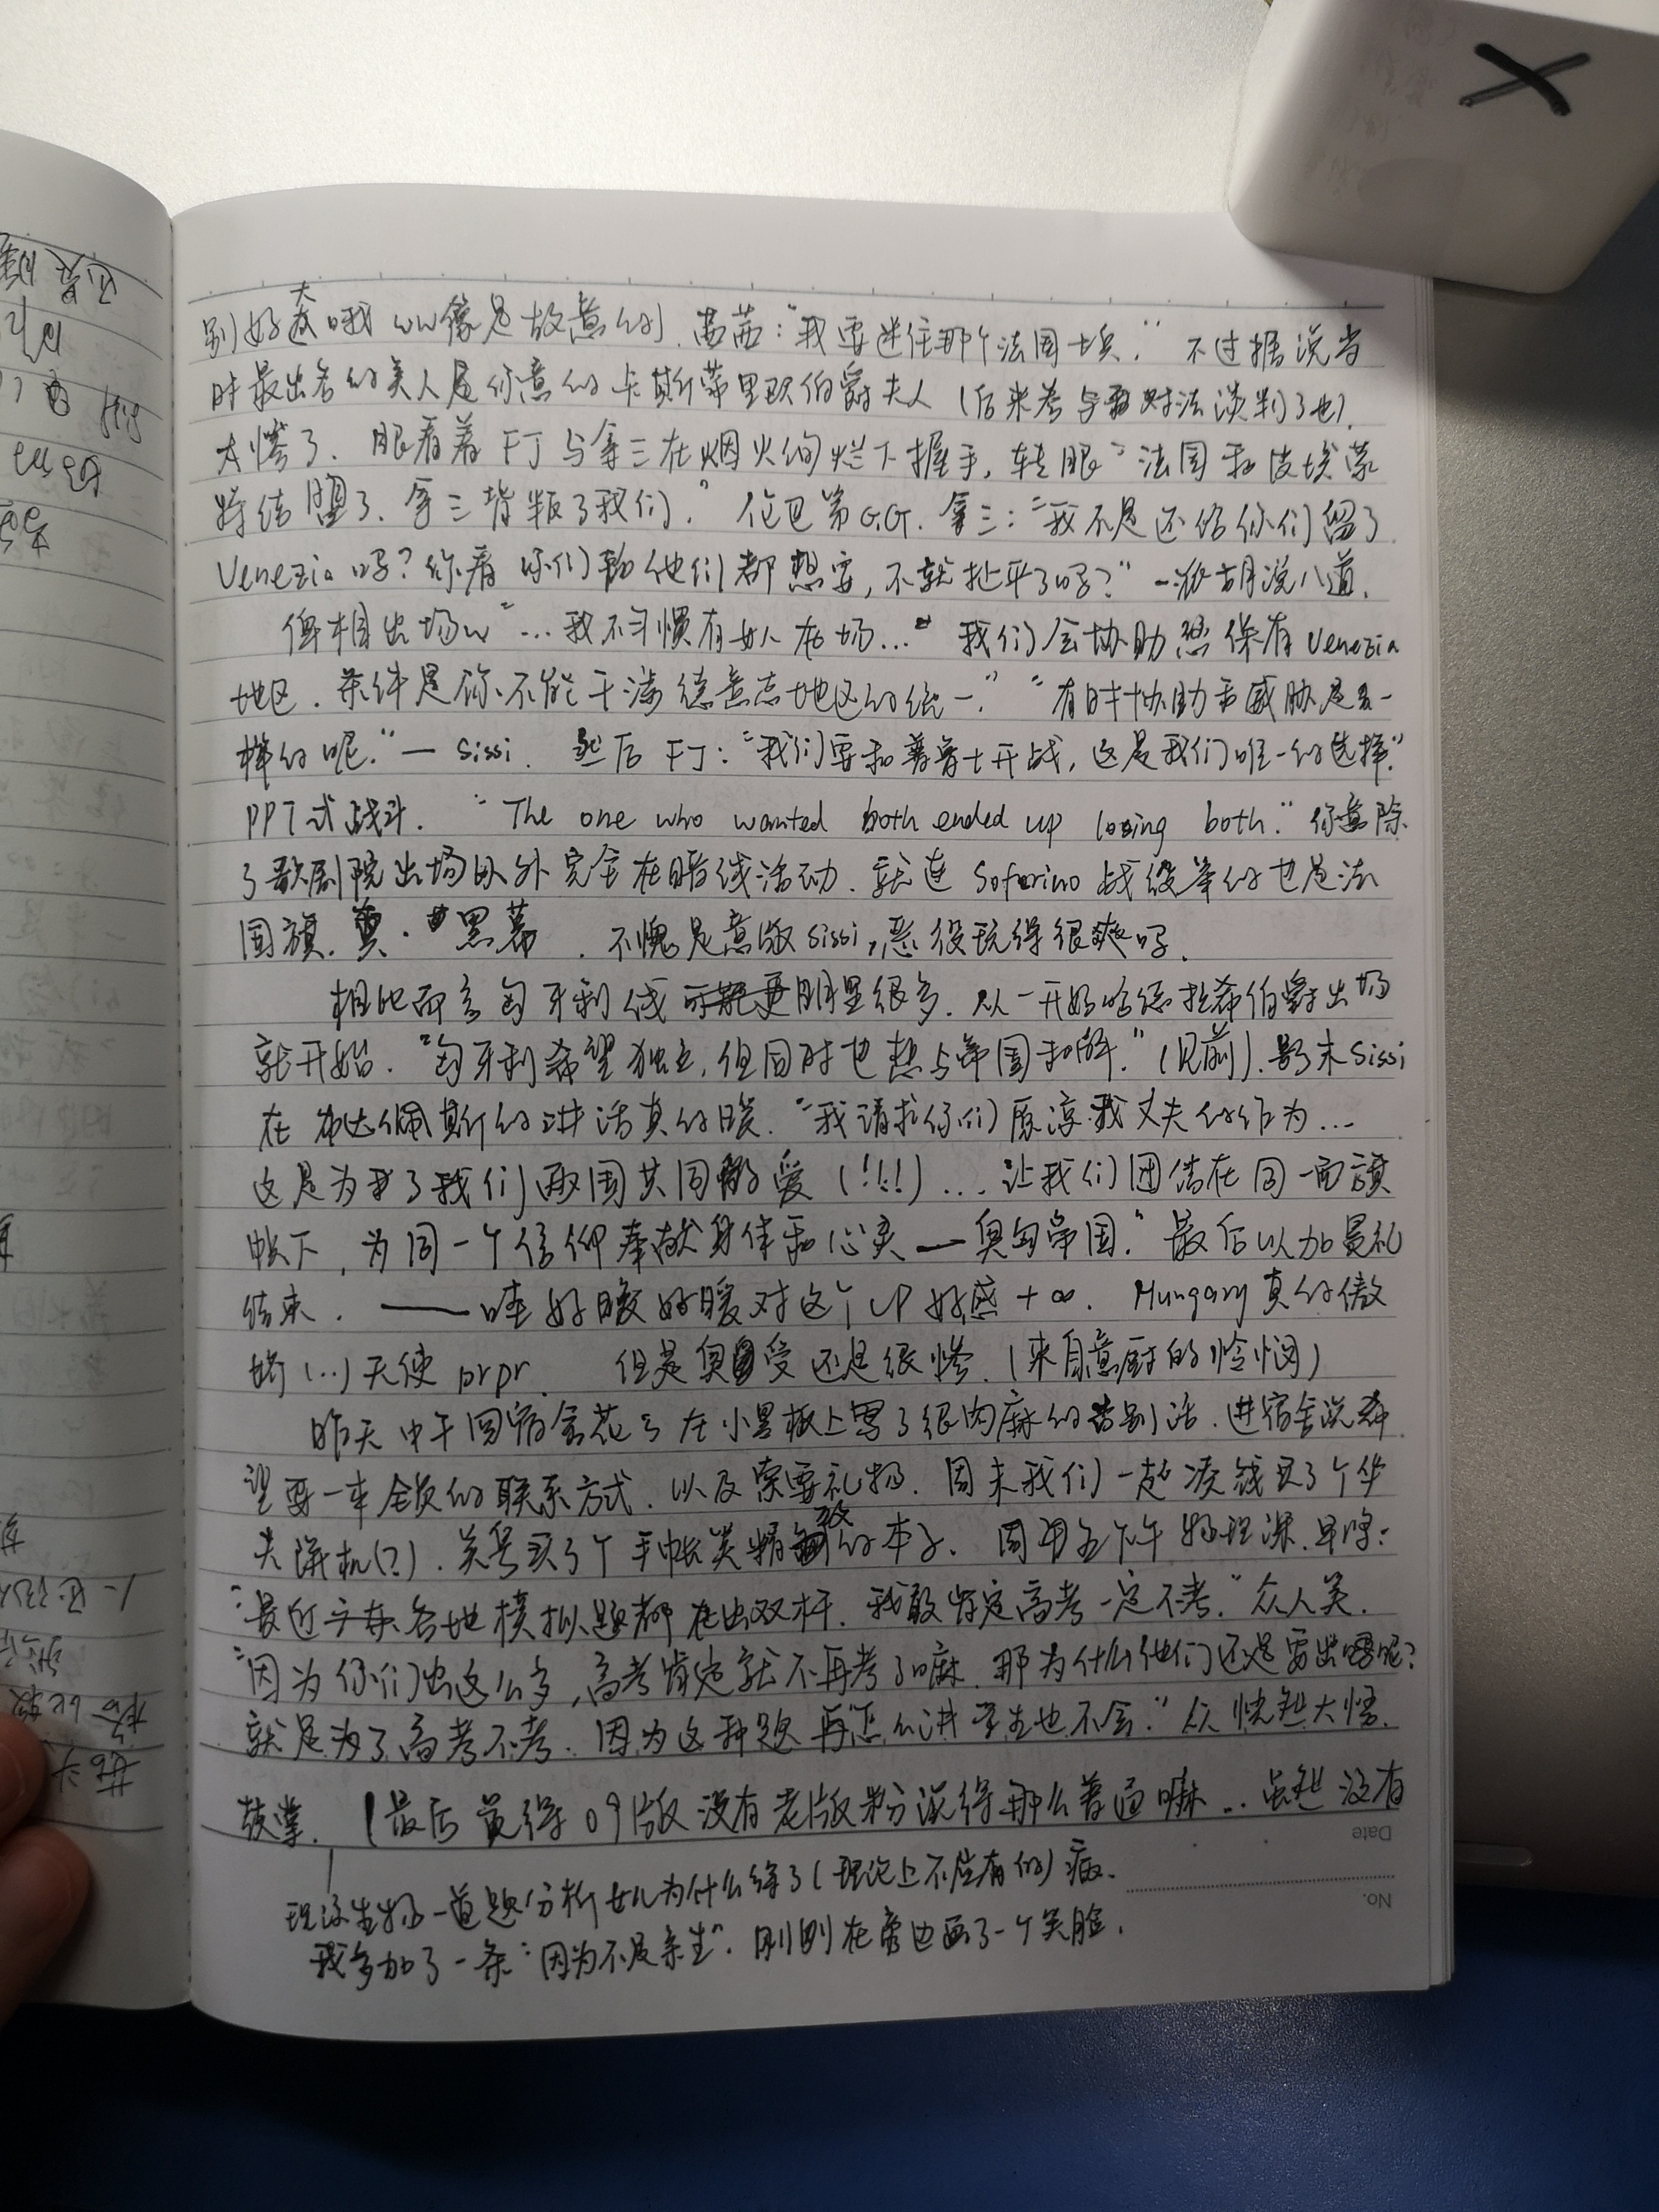 别好大哦ww像是故意的. 茜茜:"我要迷住那个法国大兵." 不过据说当
时最出名的美人是你意的卡斯蒂里欧伯爵夫人 (后来参与对法谈判了也).
太惨了. 眼看着 FJ 与拿三在烟火绚烂下握手, 转眼"法国和皮埃蒙
特结盟了. 拿三背叛了我们." 伦巴第 G.G. 拿三:"我不是还给你们留了
Venezia 吗? 你看你们和他们都想要, 不就扯平了吗?" 一派胡说八道.
俾相出场w "…我不习惯有女人在场…" "我们会协助您保有 Venezia
地区. 条件是你不能干涉德意志地区的统一." "有时协助和威胁是一
样的呢." — Sissi. 然后 FJ:"我们要和普鲁士开战, 这是我们唯一的选择."
PPT式战斗. "The one who wanted both ended up losing both." 你意除
了歌剧院出场以外完全在暗线活动. 就连 Soferino 战役举的也是法
国旗. 真·黑幕. 不愧是意版 sissi, 恶役玩得很爽吗.
相比而言匈牙利线明显很多. 从一开始哈德拉希伯爵出场
就开始. "匈牙利希望独立, 但同时也想与帝国和解." (见前). 影末 Sissi
在布达佩斯的讲话真的暖. "我请求你们原谅我丈夫的作为…
这是为了我们两国共同的爱 (!!!) … 让我们团结在同一面旗
帜下, 为同一个信仰奉献身体和心灵 — 奥匈帝国." 最后以加冕礼
结束. —— 哇好暖好暖对这个CP好感+∞. Hungary 真的傲
娇(…)天使 prpr. 但是奥受还是很惨. (来自意厨的怜悯)
昨天中午回宿舍花了在小黑板上写了很肉麻的告别话. 进宿舍说希
望要一本全员的联系方式. 以及索要礼物. 周末我们一起凑钱买了个华
夫饼机(?). 关号买了个手帐类精致的本子. 周五下午物理课. 早哼:
"最近各地模拟题都在出双杆. 我敢肯定高考一定不考." 众人笑.
"因为你们出这么多, 高考肯定就不再考了嘛. 那为什么他们还是要出呢?
就是为了高考不考. 因为这种题再怎么讲学生也不会." 众恍然大悟.
鼓掌. (最后觉得09版没有老版粉说得那么普通嘛… 虽然没有
Date
No.
现像生物一道题分析女儿为什么得了(理论上不应有的)病.
我多加了一条"因为不是亲生". 刚刚在旁边画了一个笑脸.